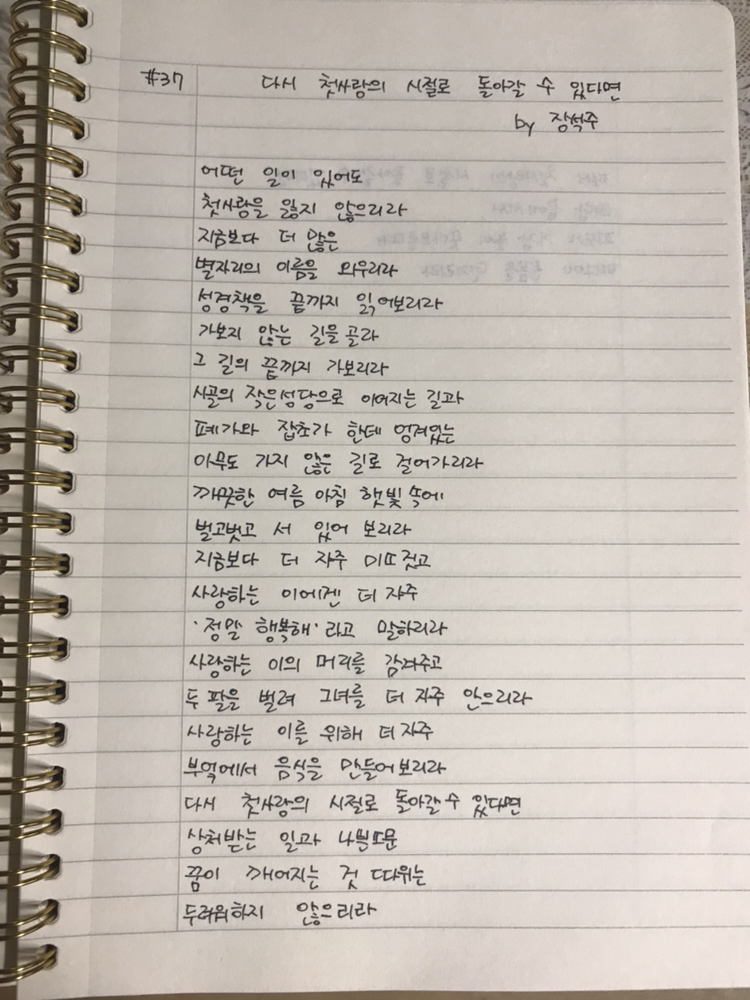 #37 다시 첫사랑의 시절로 돌아갈 수 있다면
by 장석주
어떤 일이 있어도
첫사랑을 잃지 않으리라
지금보다 더 많은
별자리의 이름을 외우리라
성경책을 끝까지 읽어보리라
가보지 않는 길을 골라
그 길의 끝까지 가보리라
시골의 작은성당으로 이어지는 길과
폐가와 잡초가 한데 엉겨있는
아무도 가지 않은 길로 걸어가리라
깨끗한 여름 아침 햇빛 속에
벌고벗고 서 있어 보리라
지금보다 더 자주 미뜨짓고
사랑하는 이에겐 더 자주
'정말 행복해'라고 말하리라
사랑하는 이의 머리를 감겨주고
두 팔을 벌려 그녀를 더 자주 안으리라
사랑하는 이를 위해 더 자주
부엌에서 음식을 만들어보리라
다시 첫사랑의 시절로 돌아갈 수 있다면
상처받는 일과 나쁜 소문
꿈이 깨어지는 것 따위는
두려워하지 않으리라